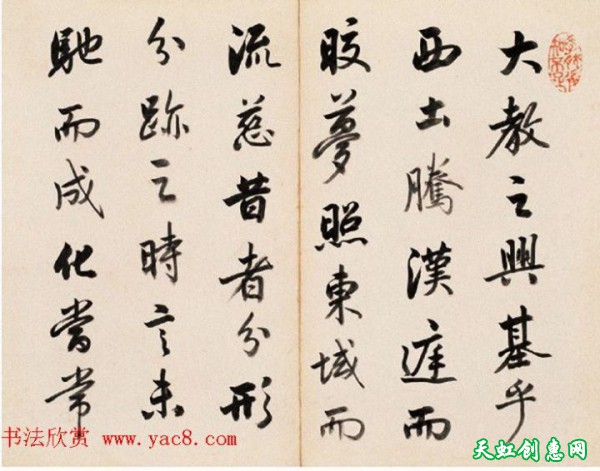 大教之興基乎
西土騰漢庭而
皎夢照東域而
流慈昔者分形
分跡之時言未
馳而成化當常
书法欣赏 www.yac8.com
天虹创意网